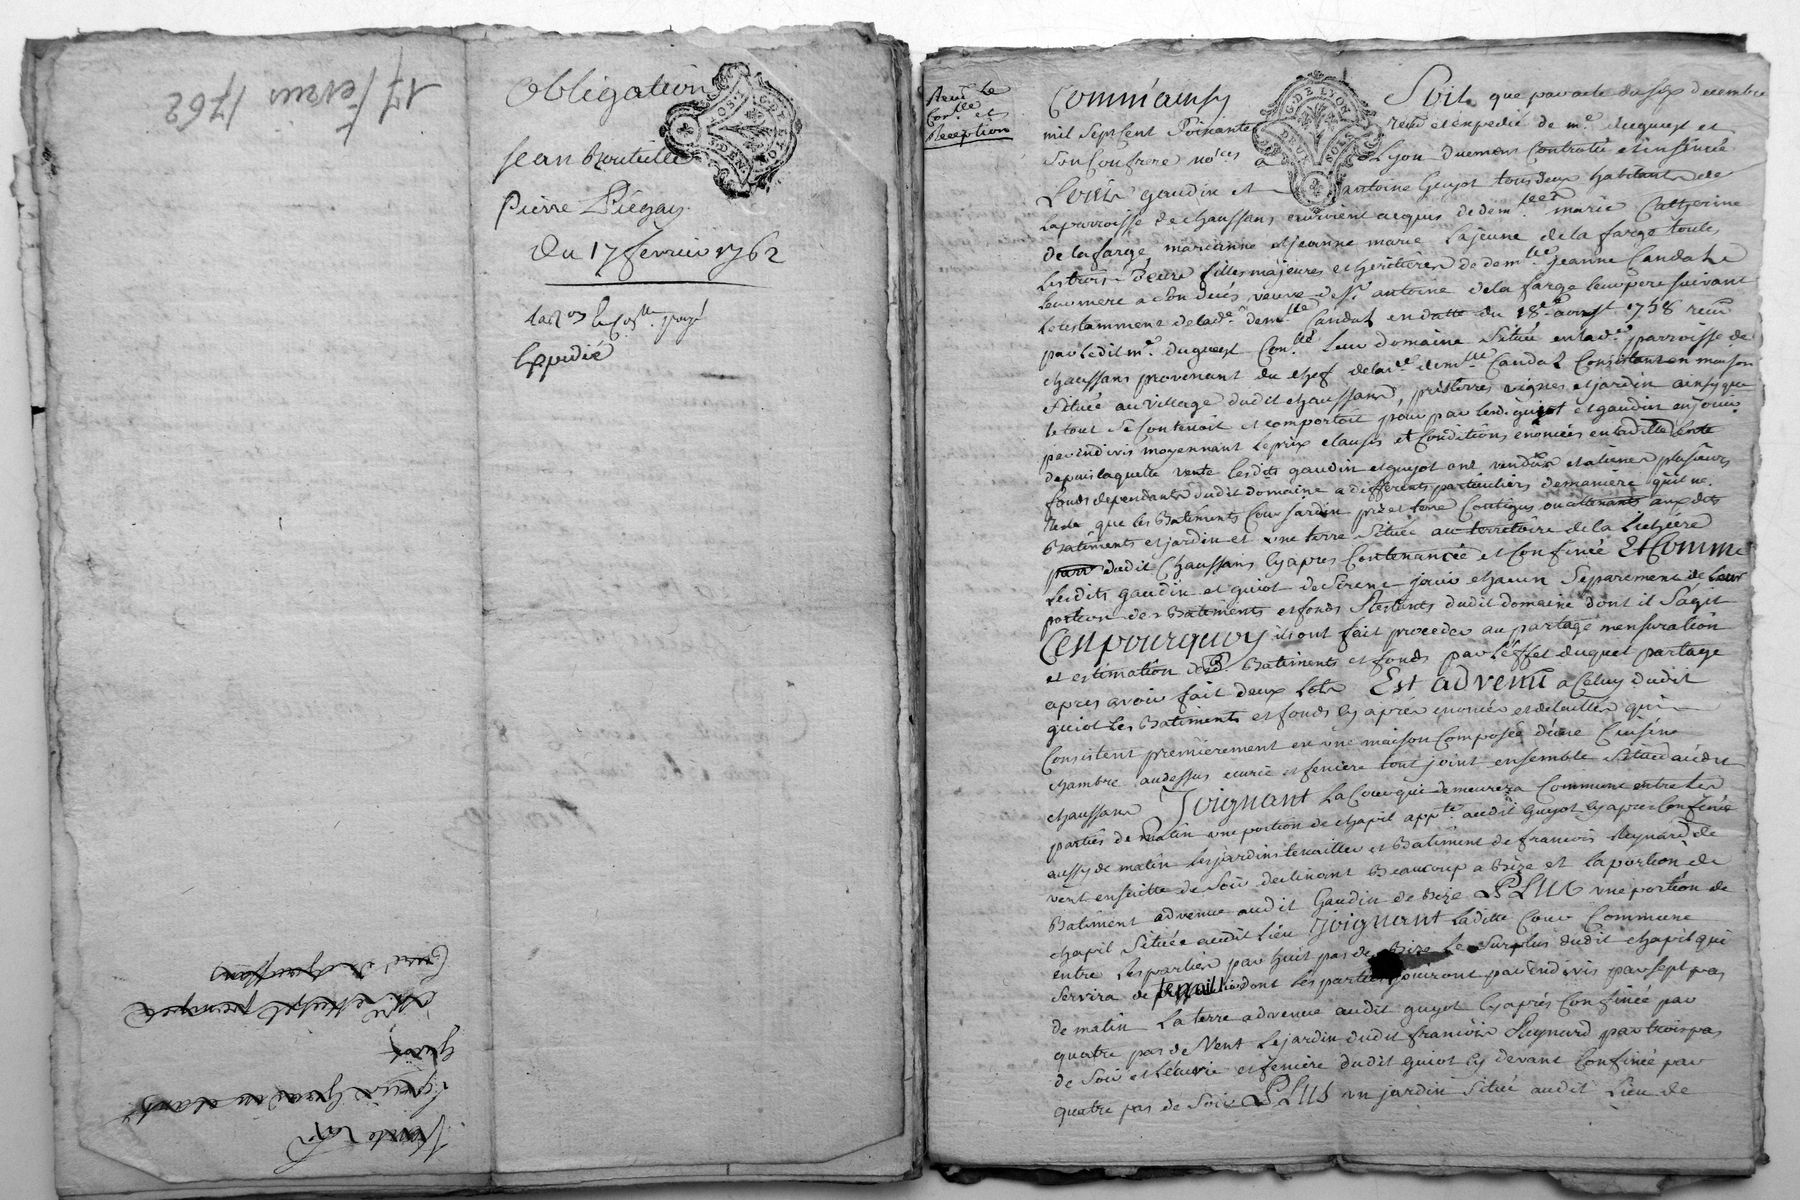 17 fevrier 1762
Obligation
Jean Bouteille
Pierre Piégay
Du 17 fevrier 1762
Expedié
G. DE LYON
SOLS
DEUX
Con.lle et
Reception
Comm'ainsy Soit que par acte du six decembre
mil sept cent soixante reçu et expedié de me. dugueyt et
son confrere no.res a Lyon duement controllé et insinué
Louis gaudin et antoine Guyot tous deux habitants de
la parroisse de chaussans auroient acquis de dem.lles marie Catherine
de la farge, marianne et jeanne marie la jeune de la farge toutes
les trois sœurs filles majeures et heritieres de dem.lle jeanne Candat
leur mere a son decés veuve de S.r antoine de la farge leur pere suivant
le testament de lad.e dem.lle Candat en datte du 18.e aoust 1758 reçu
par ledit m.e dugueyt Con.lle leur domaine situé en lad.e parroisse de
chaussans provenant du chef de lad.e dem.lle Candat consistant en maison
située au village dudit chaussans, prés terres vignes et jardin ainsy que
le tout se contenoit et comportoit pour par lesd. guyot et gaudin en jouir
par indivis moyennant le prix clauses et conditions enoncées en ladite vente
depuis laquelle vente lesdits gaudin et guyot ont vendus et aliené plusieurs
fonds dependants dudit domaine a differents particuliers de maniere qu'il ne
reste que les Batiments cour jardin pré et terre contigus ou attenants aux dits
Batiments et jardin et une terre située au territoire de la
parr dudit Chaussans cy apres contenancée et confinée Et Comme
lesdits gaudin et guiot desirent jouir chacun separement de leur
portion des Batiments et fonds restants dudit domaine dont il s'agit
C'est pourquoy ils ont fait proceder au partage mensuration
et estimation desd. Batiments et fonds par l'effet duquel partage
apres avoir fait deux lots Est advenu a celuy dudit
guiot les Batiments et fonds cy apres enoncés et detaillés qui
Consistent premierement en une maison composée d'une Cuisine
chambre au dessus ecurie et feniere tout joint ensemble situé audit
chaussans Joignant la cour qui demeurera commune entre les
parties de matin une portion de chapit app.te audit Guyot cy apres confinée
aussy de matin les jardins tenaillier et Batiment de francois Reynard de
vent ensuitte de soir declinant Beaucoup a Bize et la portion de
Batiment advenue audit Gaudin de Bize PLUS une portion de
chapit située audit lieu Joignant laditte Cour Commune
entre les parties par huit pas de Bize le surplus dudit chapit qui
servira de tenaillier dont les parties jouiront par indivis par sept pas
de matin la terre advenue audit guyot cy après confinée par
quatre pas de vent le jardin dudit francois Reynard par trois pas
de soir et l'ecurie et feniere dudit guiot cy devant confinée par
quatre pas de soir PLUS un jardin situé audit Lieu de